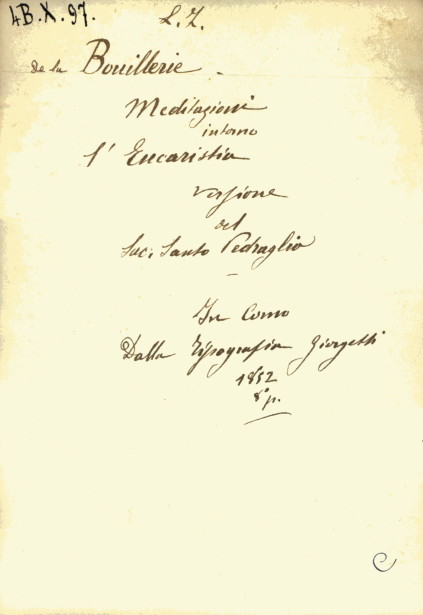 4B.X.97.
L.Z.
de la Bouillerie.
Meditazioni
intorno
l'Eucaristia
versione
del
Sac. Santo Pedraglio
In Como
Dalla Tipografia Giorgetti
1852
8° p.